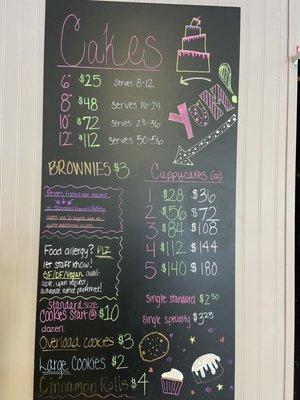 Cakes
6" $25 Serves 8-12
8" $48 Serves 16-24
10" $72 Serves 28-36
12" $112 Serves 50-56
YUM!
BROWNIES $3
Prices listed are based
on standard flavors/filling
Cakes are 2 layers
additional layers
Food allergy? PLZ
let staff know!
GF/DF/Vegan avail-
able, upon request;
advance notice preferred!
Standard size
Cookies start @ $10
dozen
Overload cookies $3
Large Cookies $2
Cinnamon Rolls $4
Cuppycakes (DZ)
1 $28 $36
2 $56 $72
3 $84 $108
4 $112 $144
5 $140 $180
Single standard $2.50
Single specialty $3.25